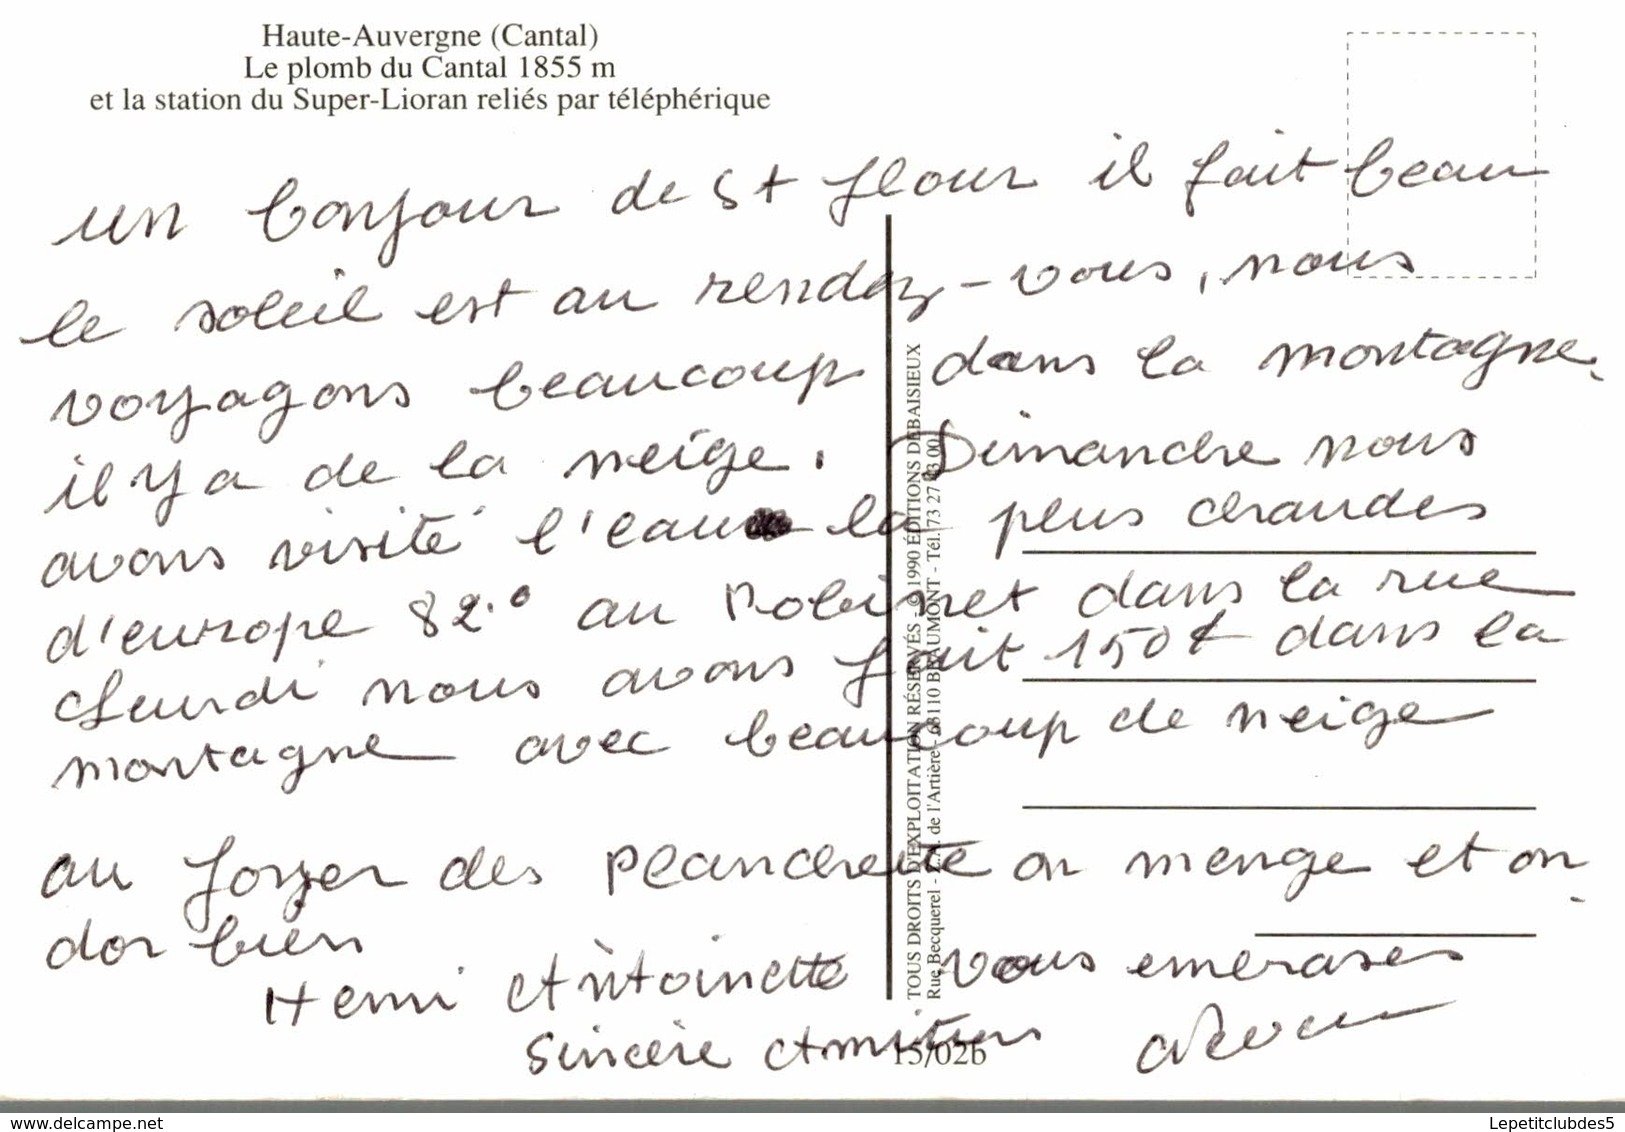 Haute-Auvergne (Cantal)
Le plomb du Cantal 1855 m
et la station du Super-Lioran reliés par téléphérique
un bonjour de St flour il fait beau
le soleil est au rendez-vous, nous
voyagons beaucoup dans la montagne.
il y a de la neige. Dimanche nous
avons visité l'eau la plus chaudes
d'europe 82.° au Robinet dans la rue
nous avons fait 150 dans la
montagne avec beaucoup de neige
au foyer des planchette on menge et on
dor bien
Henri Antoinette vous emerases
Sincère Amitiers
TOUS DROITS D'EXPLOITATION RÉSERVÉS - © 1990 ÉDITIONS DEBAISIEUX
Rue Becquerel - Z.A. de l'Artière - 63110 BEAUMONT - Tél. 73 27 00
15/02b
delcampe.net
Lepetitclubdes5